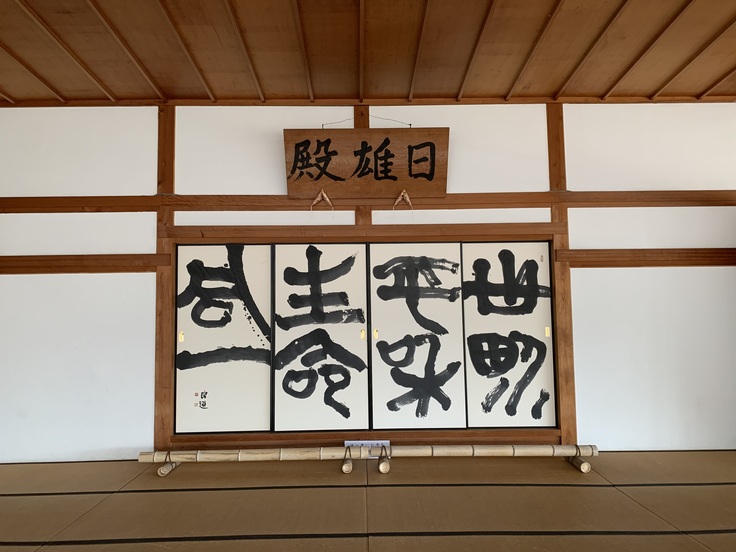 日雄殿
世界
平和
生命
同一